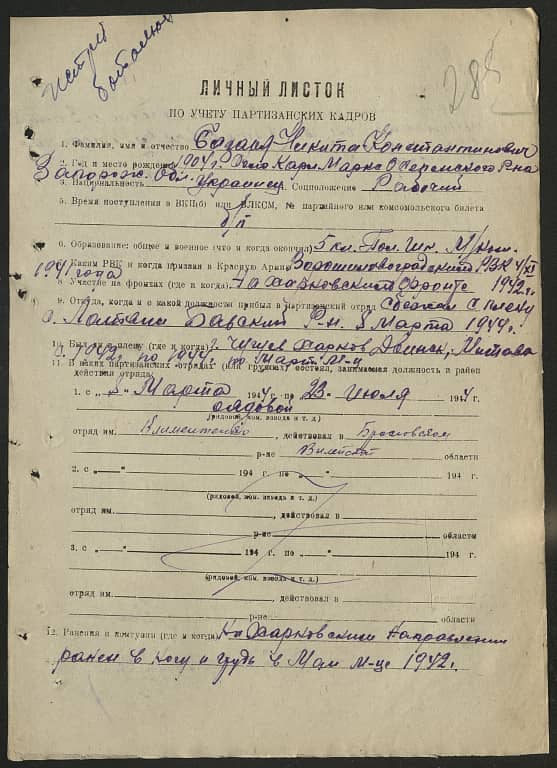 истреб
батальон
285
ЛИЧНЫЙ ЛИСТОК
ПО УЧЕТУ ПАРТИЗАНСКИХ КАДРОВ
1. Фамилия, имя и отчество Никита Константинович
2. Год и место рождения 1904 г. Карл Маркс
Запорож. обл.
3. Национальность Украинец Соцположение Рабочий
5. Время поступления в ВКП(б) или ВЛКСМ, № партийного или комсомольского билета
б/п
6. Образование: общее и военное (что и когда окончил) 5 кл.
7. Каким РВК и когда призван в Красную Армию Ворошиловоградский РВК
1941 года
8. Участие на фронтах (где и когда) На харковском фронте 1942 г.
9. Откуда, когда и с какой должности прибыл в партизанский отряд Сбежал с плену
Р-н. 8 Марта 1944 г.
10. Был ли в плену (где и когда) г. Чугуев Харков Двинск, Митава
с 1942 по 1944 г. по Март м-ц
11. В каких партизанских отрядах (или группах) состоял, занимаемая должность и район
действия отряда:
1. с „8“ Марта 1944 г. по 23 июля 1944 г.
рядовой
(рядовой, ком. взвода и т. д.)
отряд им. , действовал в Браславском
р-не Вилейской области
2. с „ “ 194 г. по „ “ 194 г.
(рядовой, ком. взвода и т. д.)
отряд им. , действовал в
р-не области
3. с „ “ 194 г. по „ “ 194 г.
(рядовой, ком. взвода и т. д.)
отряд им. , действовал в
р-не области
12. Ранения и контузии (где и когда) На Харковским направлении
ранен в ногу и грудь в Мая м-це 1942 г.